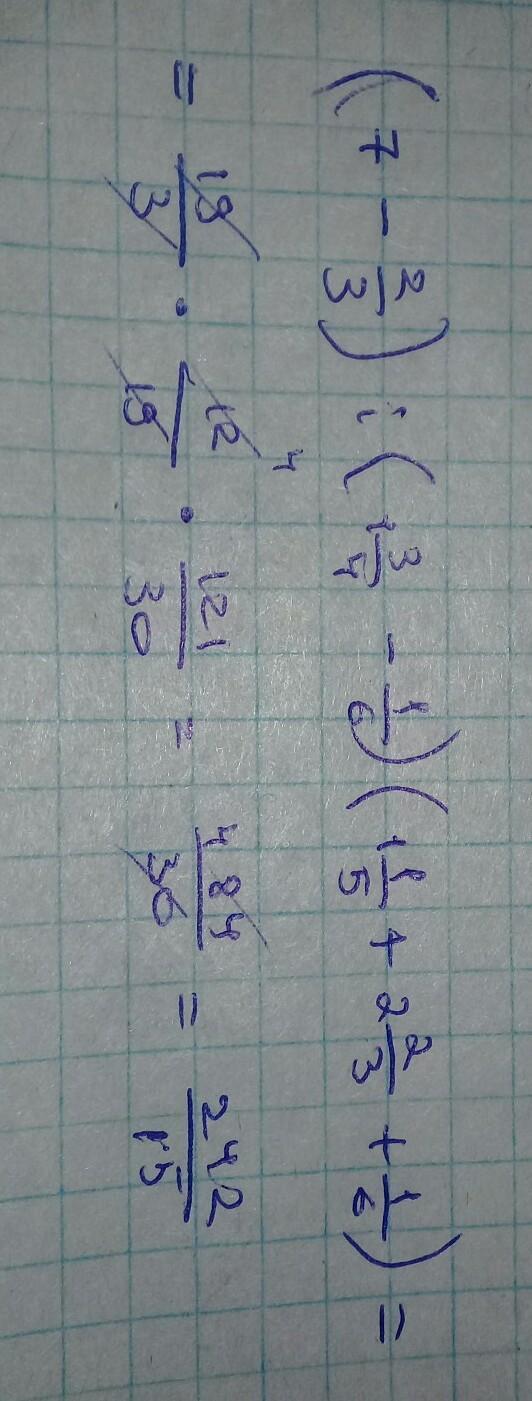 (7 - 2/3) : (1 3/4 - 1/6)(1 1/5 + 2 2/3 + 1/6) =
= 19/3 · 12/19 4 · 121/30 = 484/30 = 242/15